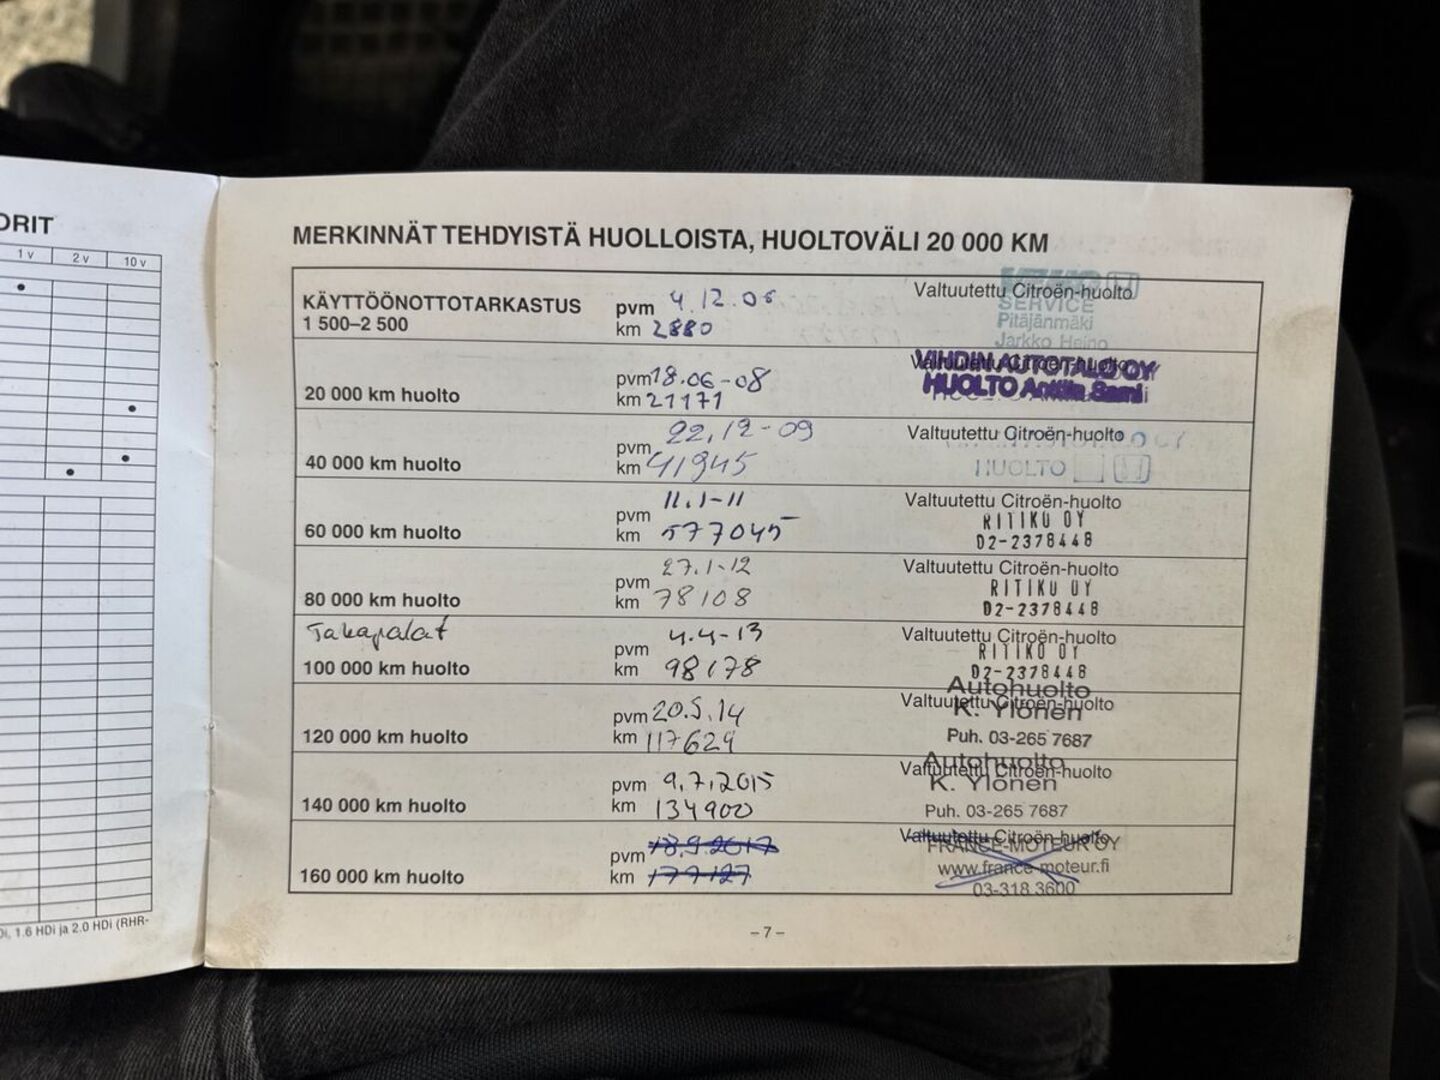 ORIT
1 v 2 v 10 v
Di, 1.6 HDi ja 2.0 HDi (RHR-
MERKINNÄT TEHDYISTÄ HUOLLOISTA, HUOLTOVÄLI 20 000 KM
KÄYTTÖÖNOTTOTARKASTUS pvm 4.12.06 Valtuutettu Citroën-huolto
1 500–2 500 km 2880 SERVICE
Pitäjänmäki
Jarkko Heino
pvm 18.06-08 VIHDIN AUTOTALO OY
Valtuutettu Citroën-huolto
20 000 km huolto km 21171 HUOLTO Anttila Sami
pvm 22.12-09 Valtuutettu Citroën-huolto
40 000 km huolto km 41945 HUOLTO
pvm 11.1-11 Valtuutettu Citroën-huolto
RITIKU OY
60 000 km huolto km 577045 02-2378448
pvm 27.1-12 Valtuutettu Citroën-huolto
RITIKU OY
80 000 km huolto km 78108 02-2378448
Takapalat pvm 4.4-13 Valtuutettu Citroën-huolto
RITIKU OY
100 000 km huolto km 98178 02-2378448
Autohuolto
pvm 20.5.14 Valtuutettu Citroën-huolto
K. Ylönen
120 000 km huolto km 117629 Puh. 03-265 7687
Autohuolto
pvm 9.7.2015 Valtuutettu Citroën-huolto
K. Ylönen
140 000 km huolto km 134900 Puh. 03-265 7687
pvm 18.9.2017 Valtuutettu Citroën-huolto
FRANCE-MOTEUR OY
160 000 km huolto km 177127 www.france-moteur.fi
03-318 3600
– 7 –